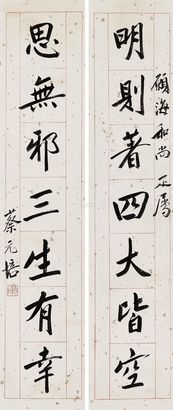 明則著四大皆空
願海和尚正屬
思無邪三生有幸
蔡元培